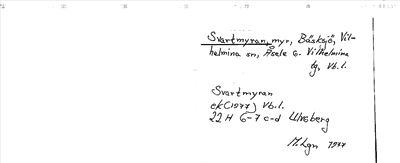 Svartmyran, myr, Bäsksjö, Vil-
helmina sn, Åsele o. Vilhelmina
tg, Vb. l.
Svartmyran
ek (1977) Vb. l.
22 H 6-7 c-d Ulvoberg
M. Lgn 1977